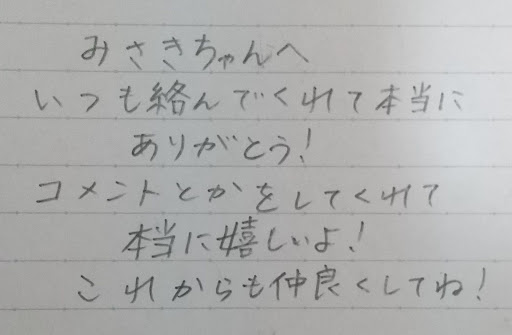 みさきちゃんへ
いつも絡んでくれて本当に
ありがとう!
コメントとかをしてくれて
本当に嬉しいよ!
これからも仲良くしてね!